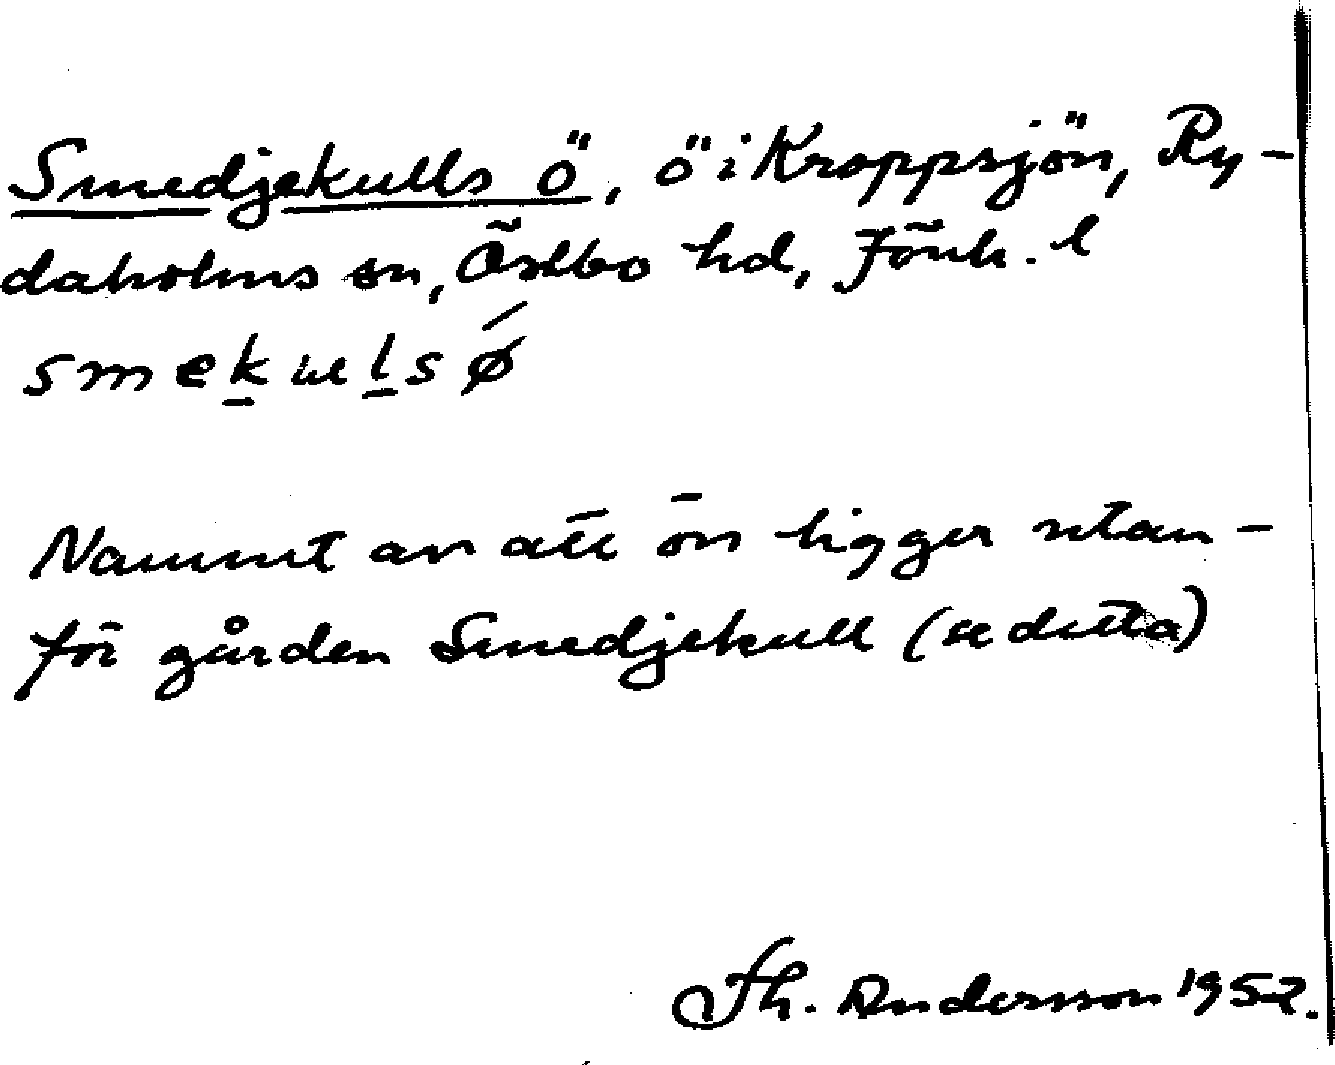 Smedjekulls ö, ö i Kroppsjön, Ry-
daholms sn, Östbo hd, Jönk. l
smekulsǿ
Namnt av att ön ligger utan-
för gården Smedjekull (se detta)
Th. Andersson 1952.